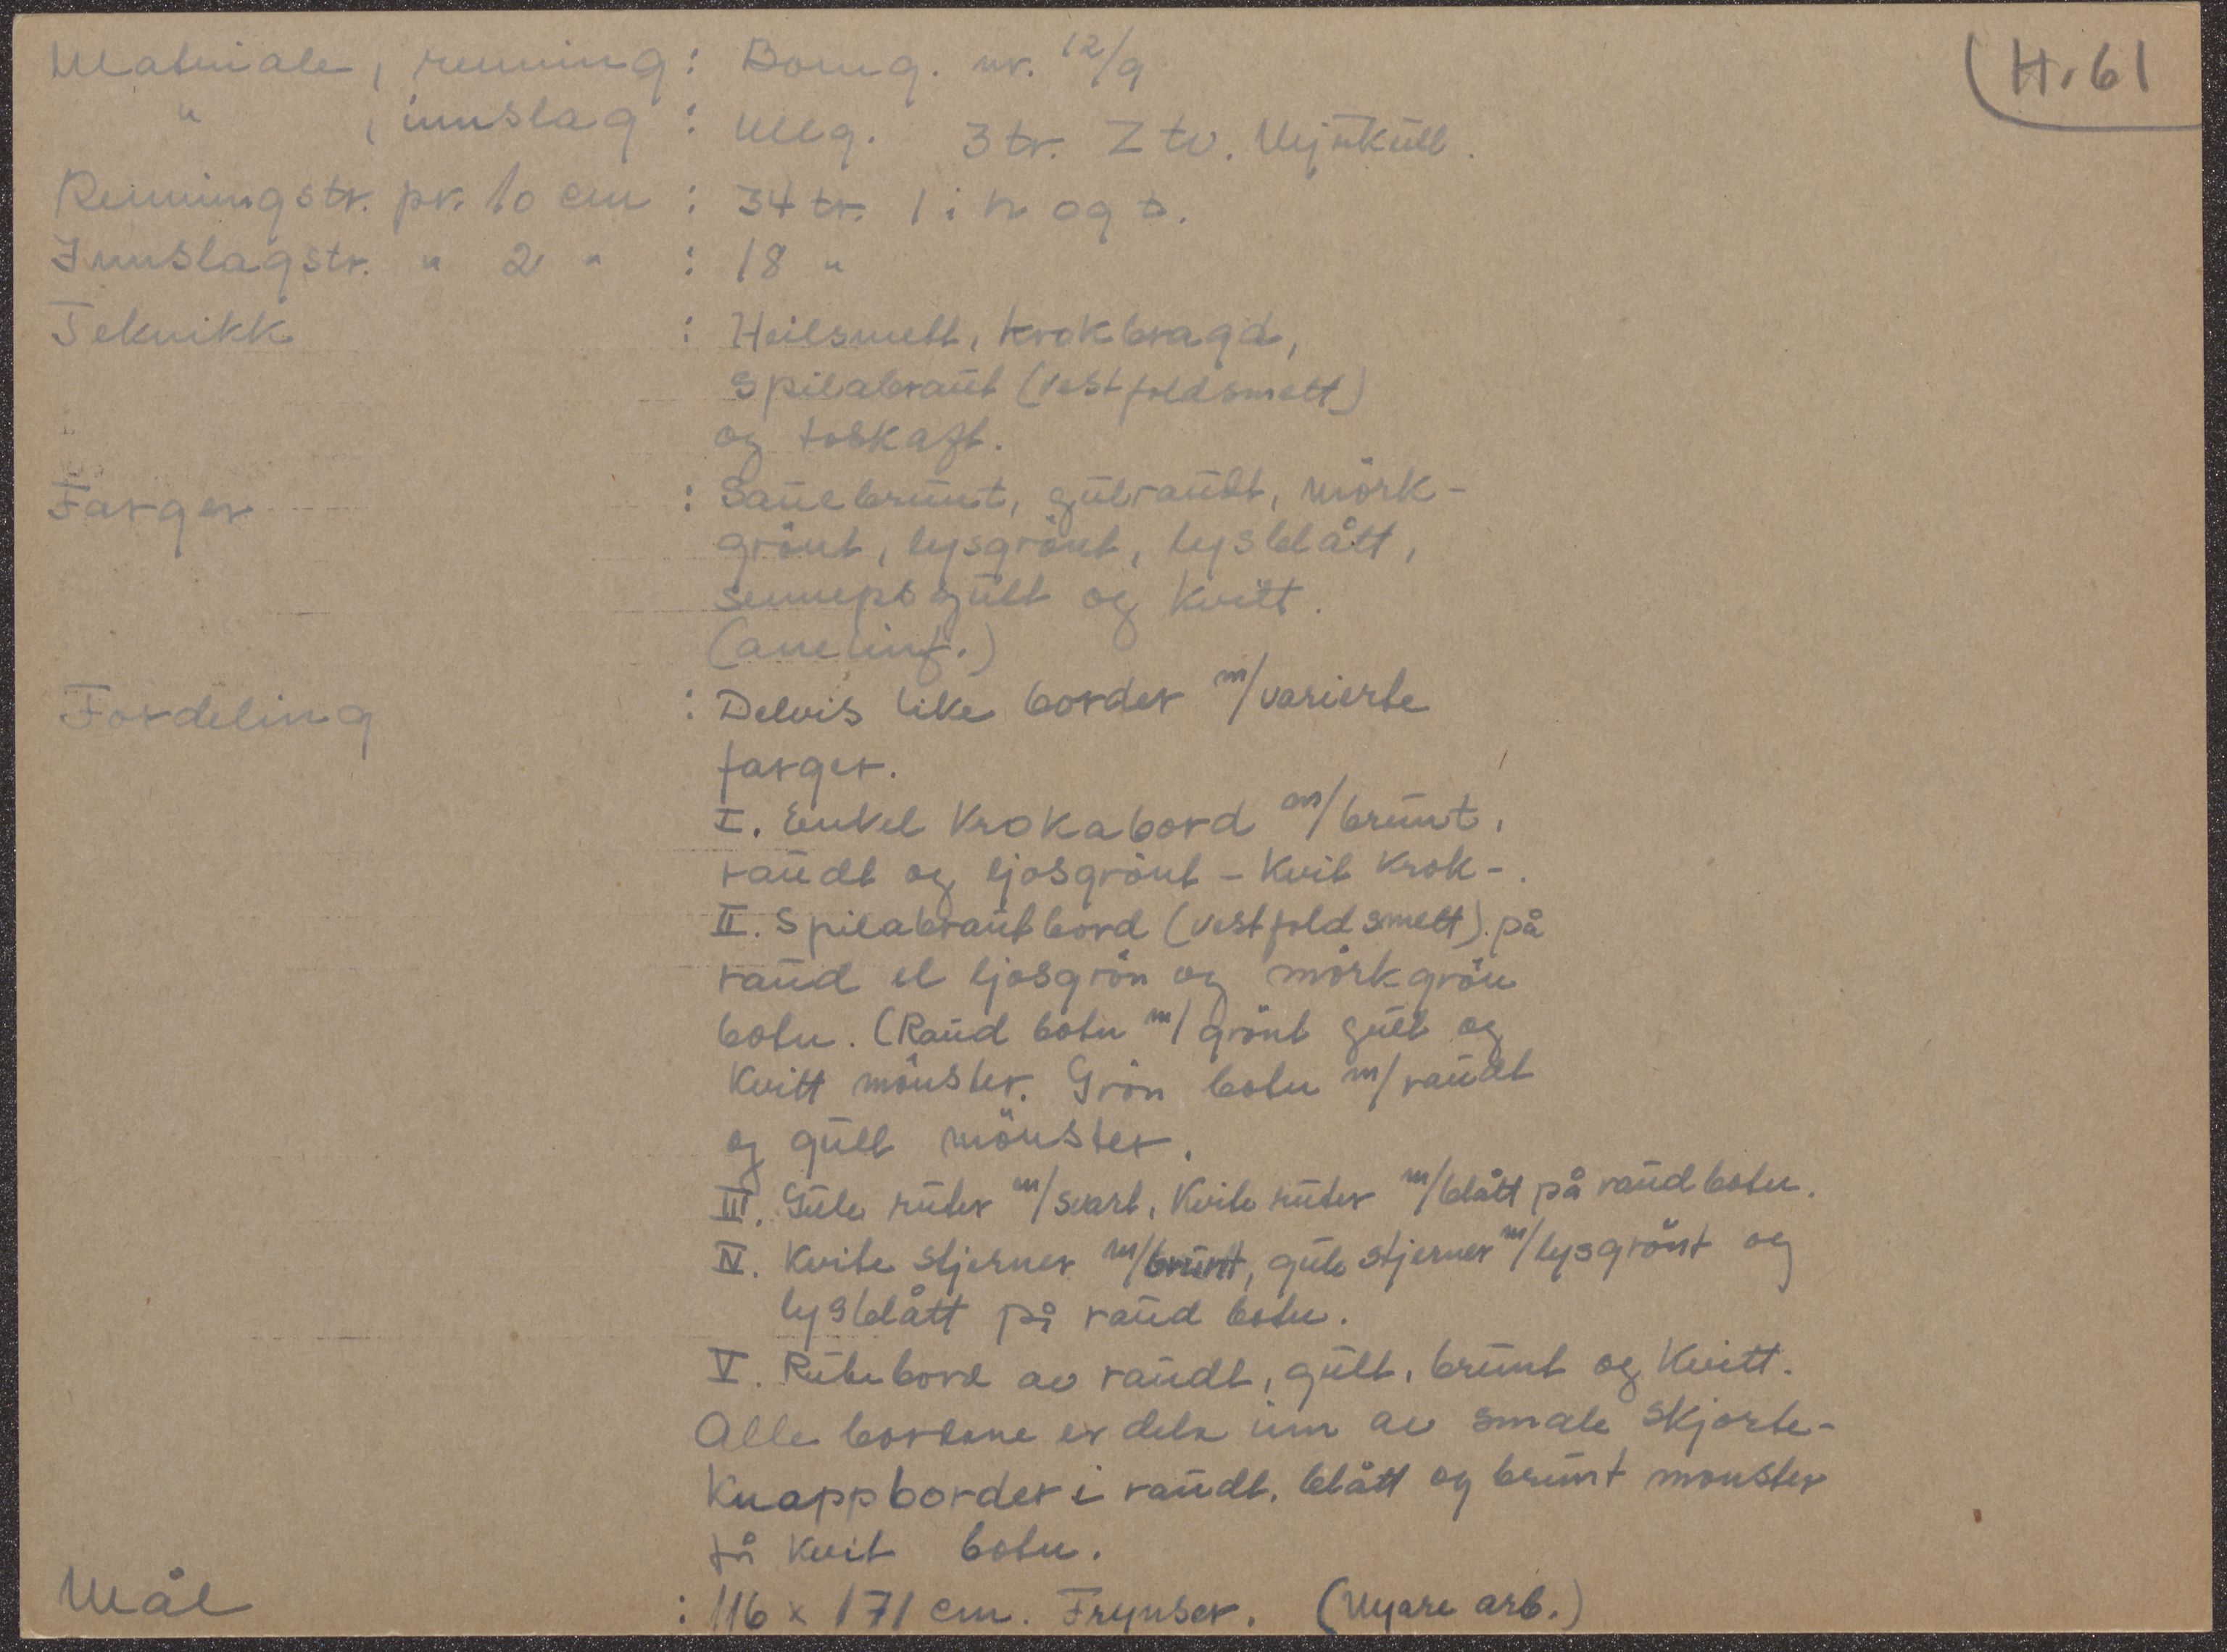 H. 61
Materiale, renning : Bomg. nr. 12/9
" , innslag : Ullg. 3 tr. Z tv. Mjuk ull.
Renningstr. pr. 10 cm : 34 tr. 1 i h og t.
Innslagstr. " 2 " : 18 "
Teknikk : Heilsmett, krokbragd,
Spilabraut (Vestfoldsmett)
og toskaft.
Farger : Sauebrunt, gulraudt, mörk-
grönt, lysgrönt, lysblått,
sennepsgult og kvitt.
(anelinf.)
Fordeling : Delvis like border m/varierte
farger.
I. Enkel krokabord m/brunt,
raudt og ljosgrönt - kvit krok -.
II. Spilabrautbord (vestfoldsmett) på
raud el ljosgrön og mörkgrön
botn. (Raud botn m/ grönt gult og
kvitt mönster. Grön botn m/ raudt
og gult mönster.
III. Gule ruter m/svart, kvite ruter m/blått på raud botn.
IV. Kvite stjerner m/brunt, gule stjerner m/lysgrönt og
lysblått på raud botn.
V. Rutebord av raudt, gult, brunt og kvitt.
Alle bordane er delt inn av smale skjorte-
knappborder i raudt, blått og brunt monster
på kvit botn.
Mål : 116 x 171 cm. Frynser. (Nyare arb.)